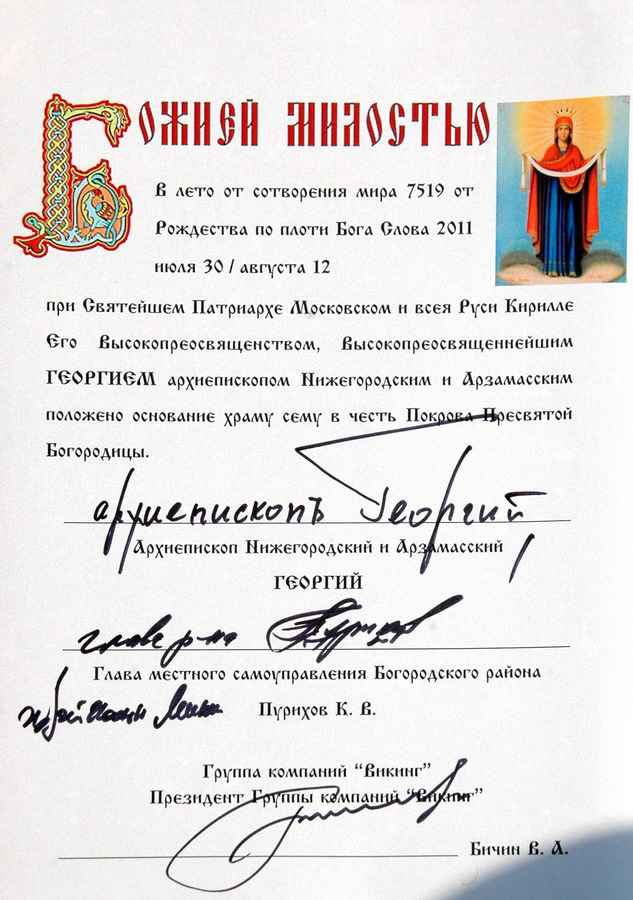 Божией милостью
В лето от сотворения мира 7519 от
Рождества по плоти Бога Слова 2011
июля 30 / августа 12
при Святейшем Патриархе Московском и всея Руси Кирилле
Его Высокопреосвященством, Высокопреосвященнейшим
ГЕОРГИЕМ архиепископом Нижегородским и Арзамасским
положено основание храму сему в честь Покрова Пресвятой
Богородицы.
архиепископъ Георгий
Архиепископ Нижегородский и Арзамасский
ГЕОРГИЙ
глава р-на
Глава местного самоуправления Богородского района
Пурихов К. В.
Группа компаний “Викинг”
Президент Группы компаний “Викинг”
Бичин В. А.